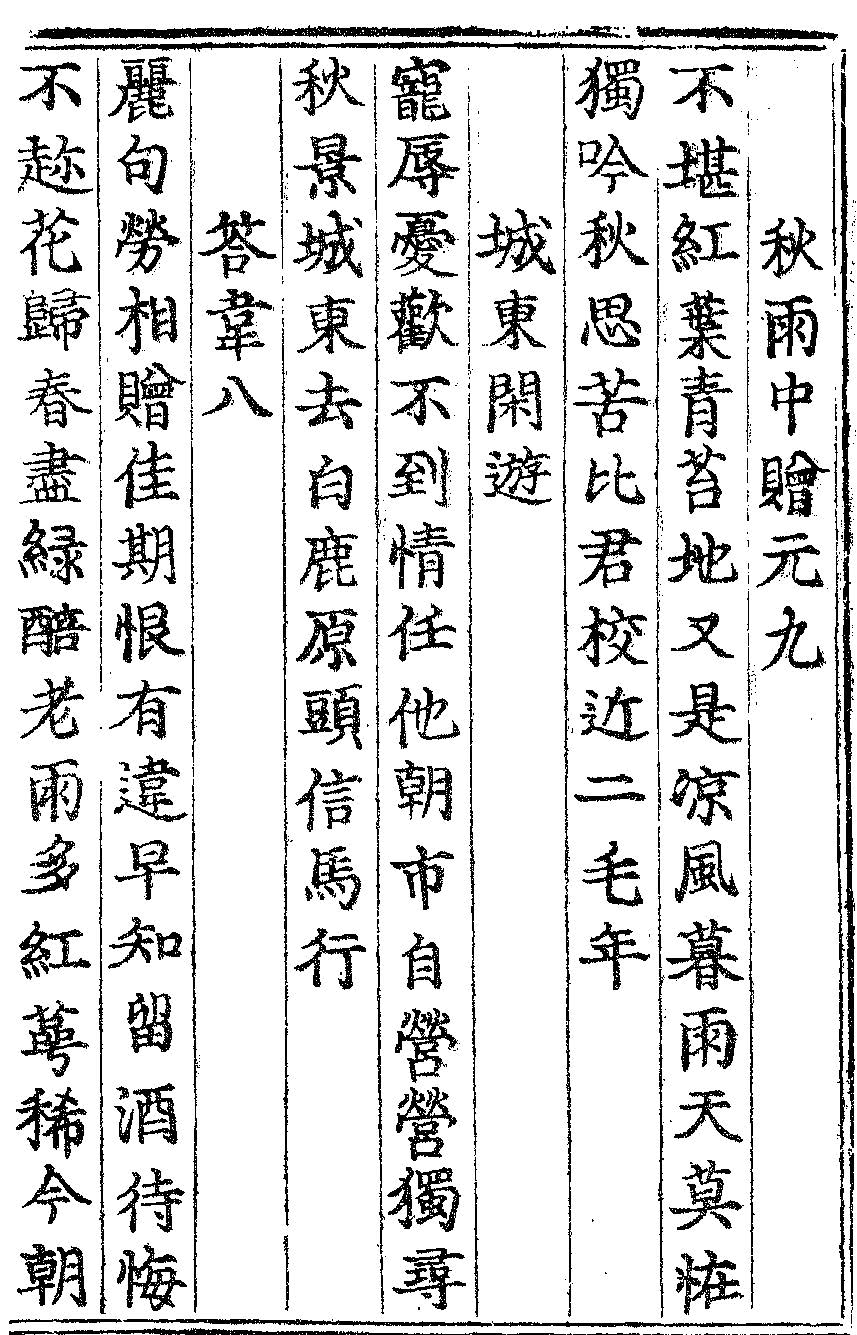 秋雨中贈元九
不堪紅葉青苔地又是涼風暮雨天莫恠
獨吟秋思苦比君校近二毛年
城東閑遊
寵辱憂歡不到情任他朝市自營營獨尋
秋景城東去白鹿原頭信馬行
荅韋八
麗句勞相贈佳期恨有違早知留酒待悔
不趂花歸春盡緑醅老雨多紅萼稀今朝